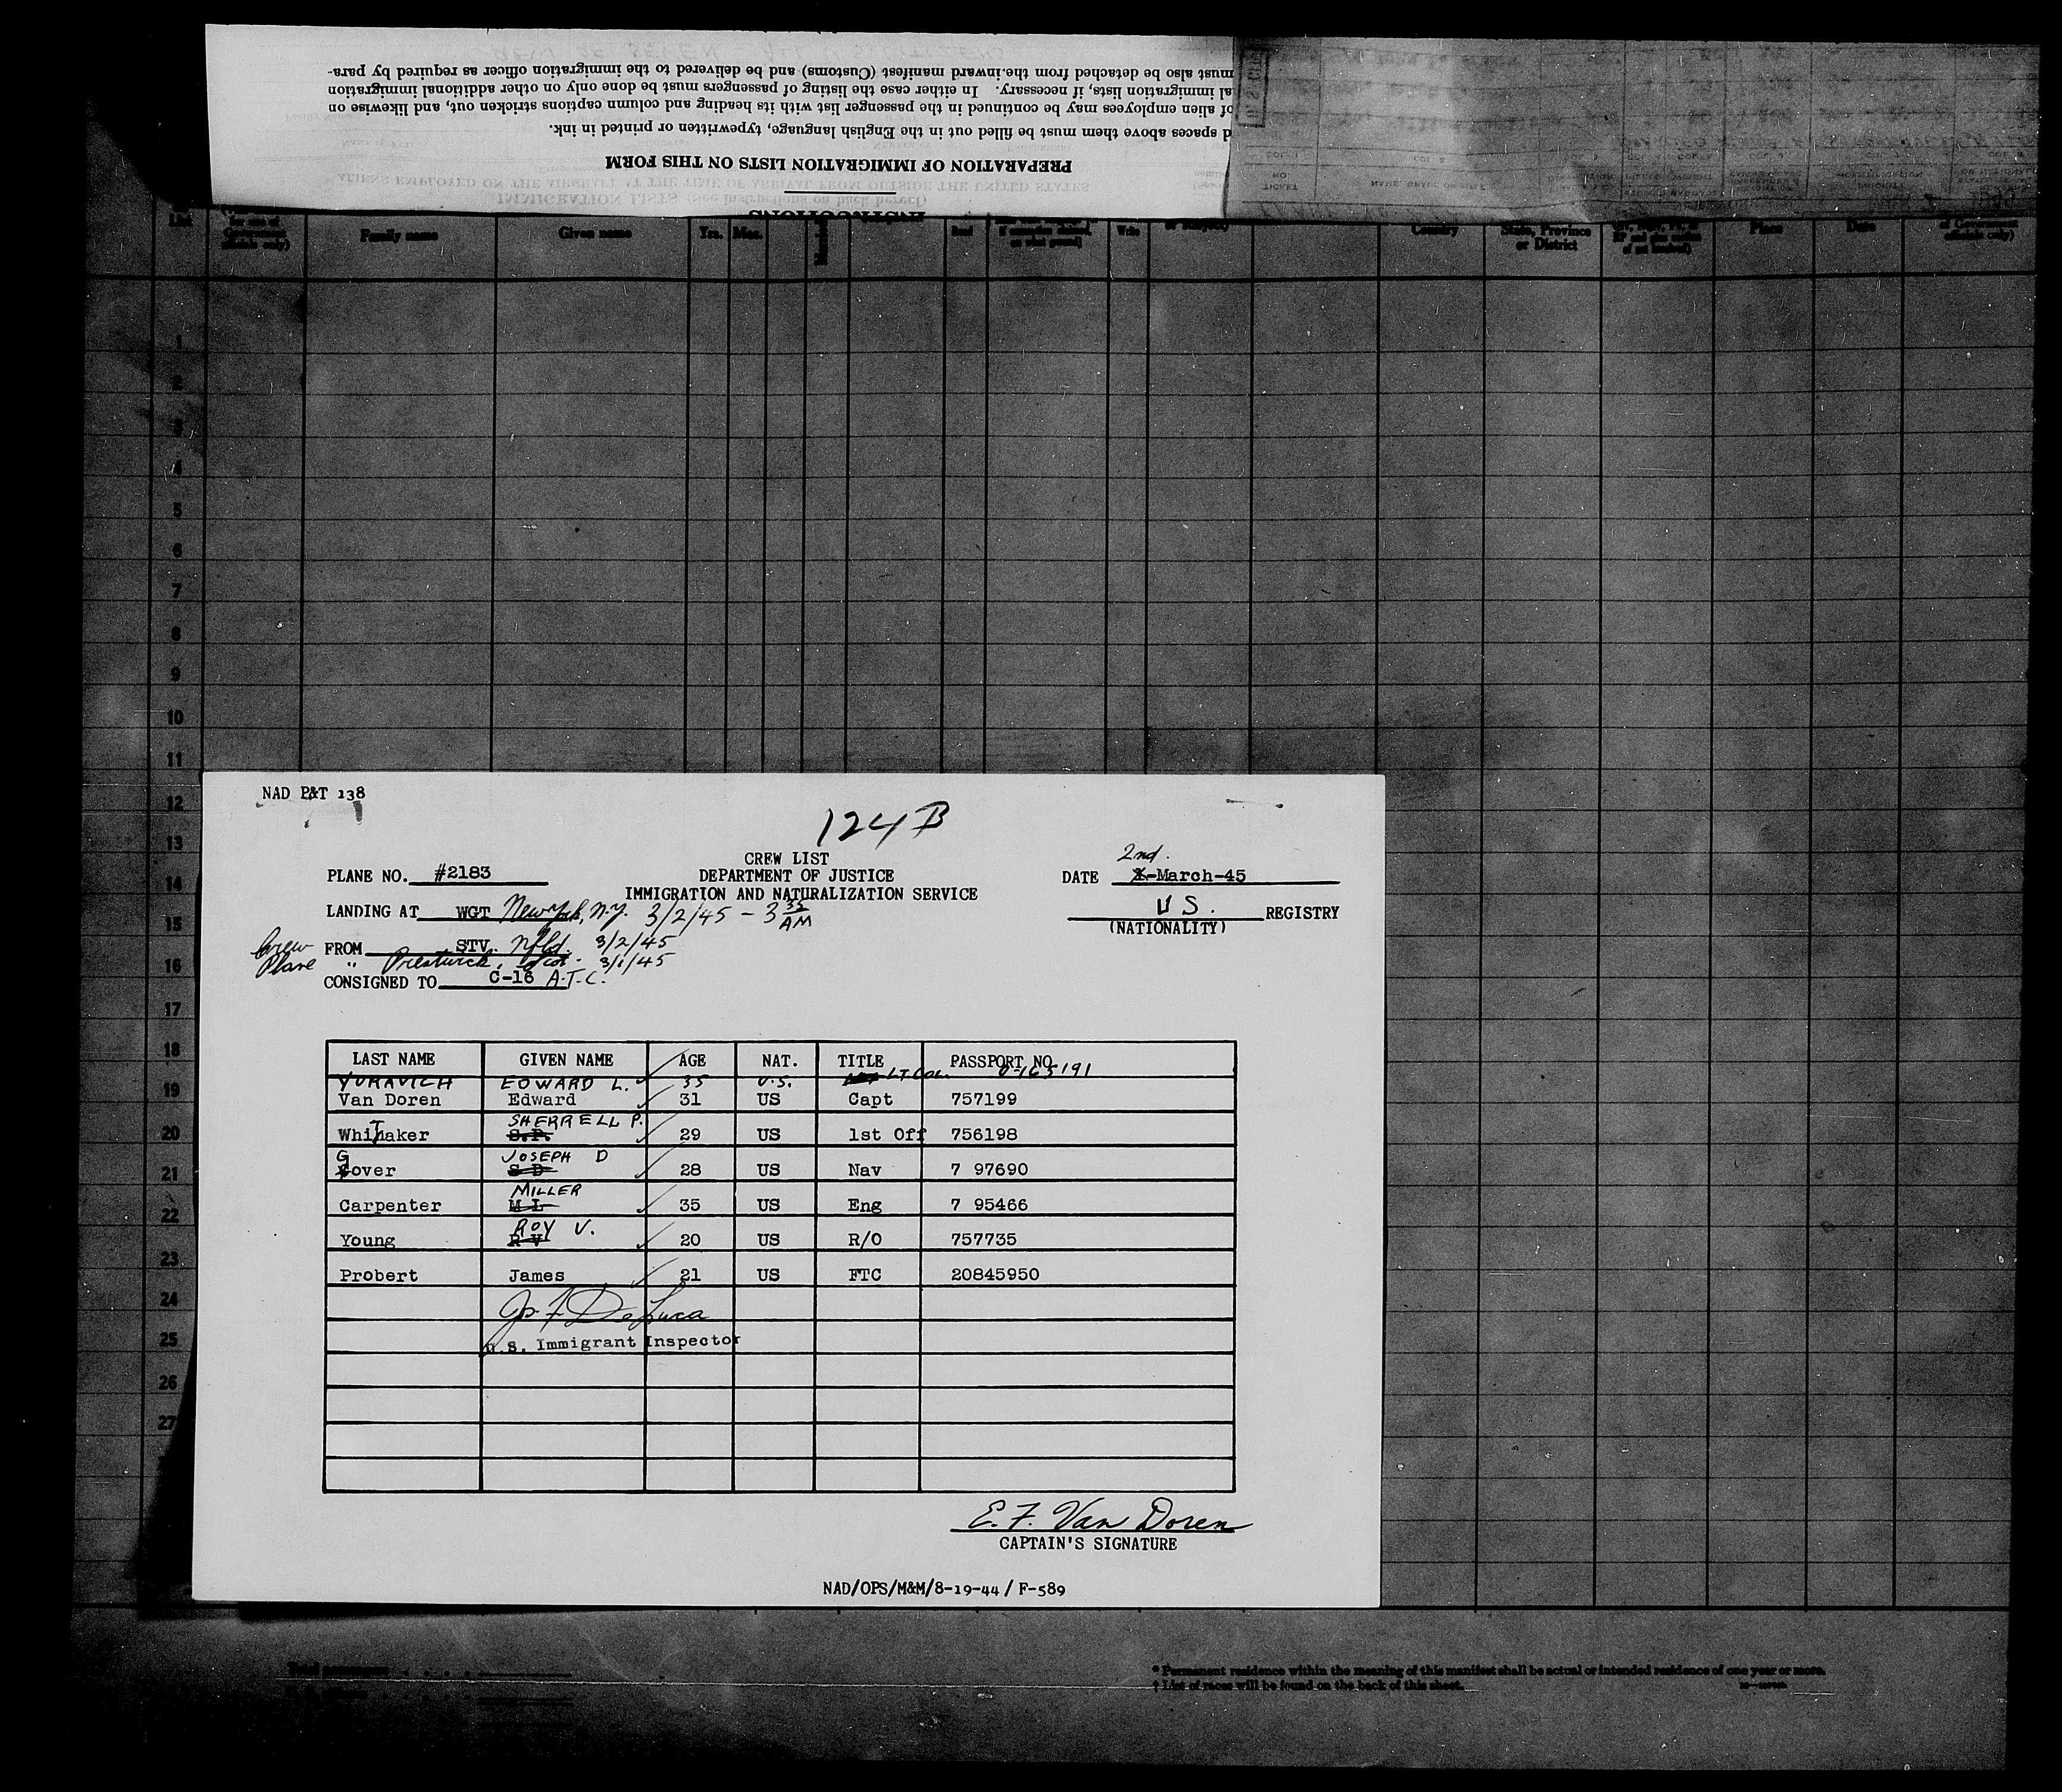 must also be detached from the inward manifest (Customs) and be delivered to the immigration officer as required by para-
al immigration lists, if necessary. In either case the listing of passengers must be done only on other additional immigration
of alien employees may be continued in the passenger list with its heading and column captions stricken out, and likewise on
d spaces above them must be filled out in the English language, typewritten or printed in ink.
PREPARATION OF IMMIGRATION LISTS ON THIS FORM
INSTRUCTIONS
ALIENS EMPLOYED ON THE AIRCRAFT AT THE TIME OF ARRIVAL FROM OUTSIDE THE UNITED STATES
IMMIGRATION LISTS (See instructions on back hereof)
Family name Given name Yrs. Mos. Read Write Country State, Province or District Place Date
1
2
3
4
5
6
7
8
9
10
11
12
13
14
15
16
17
18
19
20
21
22
23
24
25
26
27
NAD P&T 138
124 B
CREW LIST
DEPARTMENT OF JUSTICE
IMMIGRATION AND NATURALIZATION SERVICE
PLANE NO. #2183
2nd.
DATE -March-45
LANDING AT WGT New York, N.Y. 3/2/45 - 3 35 AM
U S. REGISTRY
(NATIONALITY)
Crew FROM STV. Nfld. 3/2/45
Plane " Prestwick, Scot. 3/1/45
CONSIGNED TO C-16 A.T.C.
LAST NAME GIVEN NAME AGE NAT. TITLE PASSPORT NO.
YURAVICH EDWARD L. 35 U.S. LT COL. 0-163191
Van Doren Edward 31 US Capt 757199
Whittaker SHERRELL P. S.P. 29 US 1st Off 756198
Gover JOSEPH D S D 28 US Nav 7 97690
Carpenter MILLER M L 35 US Eng 7 95466
Young ROY V. R V 20 US R/O 757735
Probert James 21 US FTC 20845950
Jos F DeLuca
U.S. Immigrant Inspector
E. F. Van Doren
CAPTAIN'S SIGNATURE
NAD/OPS/M&M/8-19-44/ F-589
* Permanent residence within the meaning of this manifest shall be actual or intended residence of one year or more.
† List of races will be found on the back of this sheet.